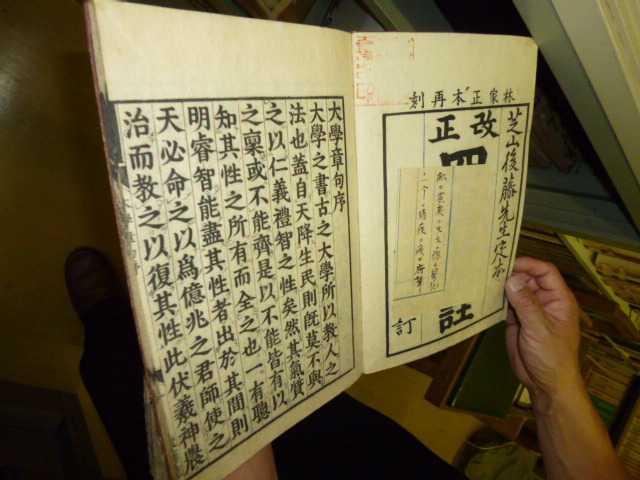 林家正本再刻
改正
芝山後藤先生定本
四
訂
大學章句序
大學之書古之大學所以教人之
法也蓋自天降生民則既莫不與
之以仁義禮智之性矣然其氣質
之稟或不能齊是以不能皆有以
知其性之所有而全之也一有聰
明睿智能盡其性者出於其間則
天必命之以爲億兆之君師使之
治而教之以復其性此伏羲神農